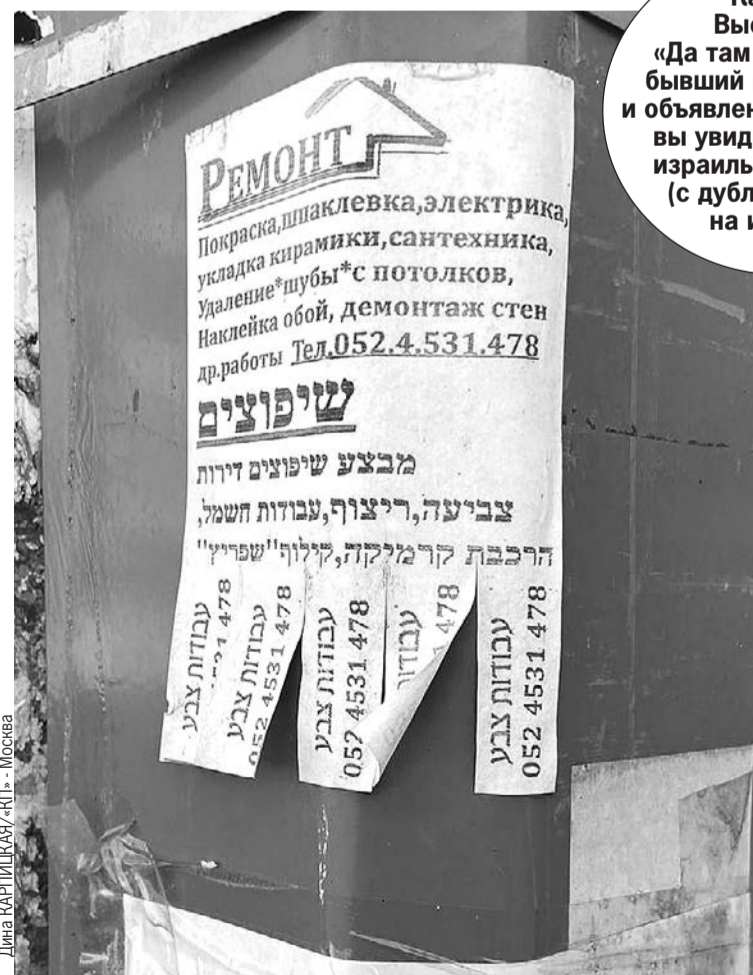 Вы
«Да там
бывший
и объявлен
вы увид
израиль
(с дубл
на и
РЕМОНТ
Покраска,шпаклевка,электрика,
укладка кирамики,сантехника,
Удаление*шубы*с потолков,
Наклейка обой, демонтаж стен
др.работы Тел.052.4.531.478
שיפוצים
מבצע שיפוצים דירות
צביעה,ריצוף,עבודות חשמל,
הרכבת קרמיקה,קילוף"שפריץ"
עבודות צבע
עבודות צבע
052 4531 478
עבודות צבע
052 4531 478
478
עבודות צבע
052 4531 478
Дина КАРПИЦКАЯ/«КП» - Москва